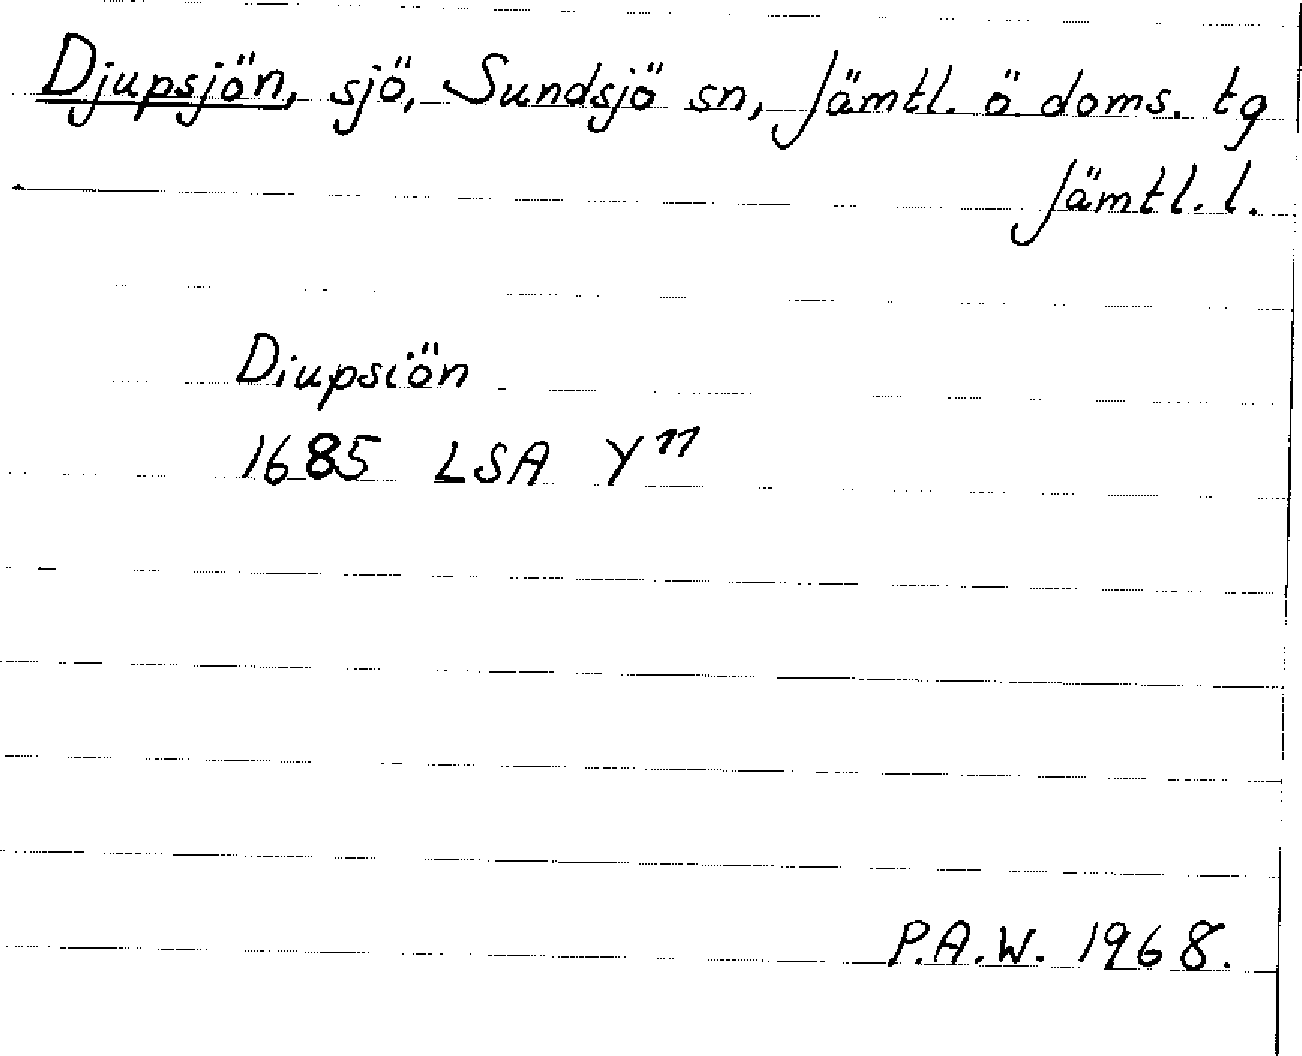 Djupsjön, sjö, Sundsjö sn, Jämtl. ö doms. tg
Jämtl. l.
Diupsiön
1685 LSA Y 11
P.A.W. 1968.